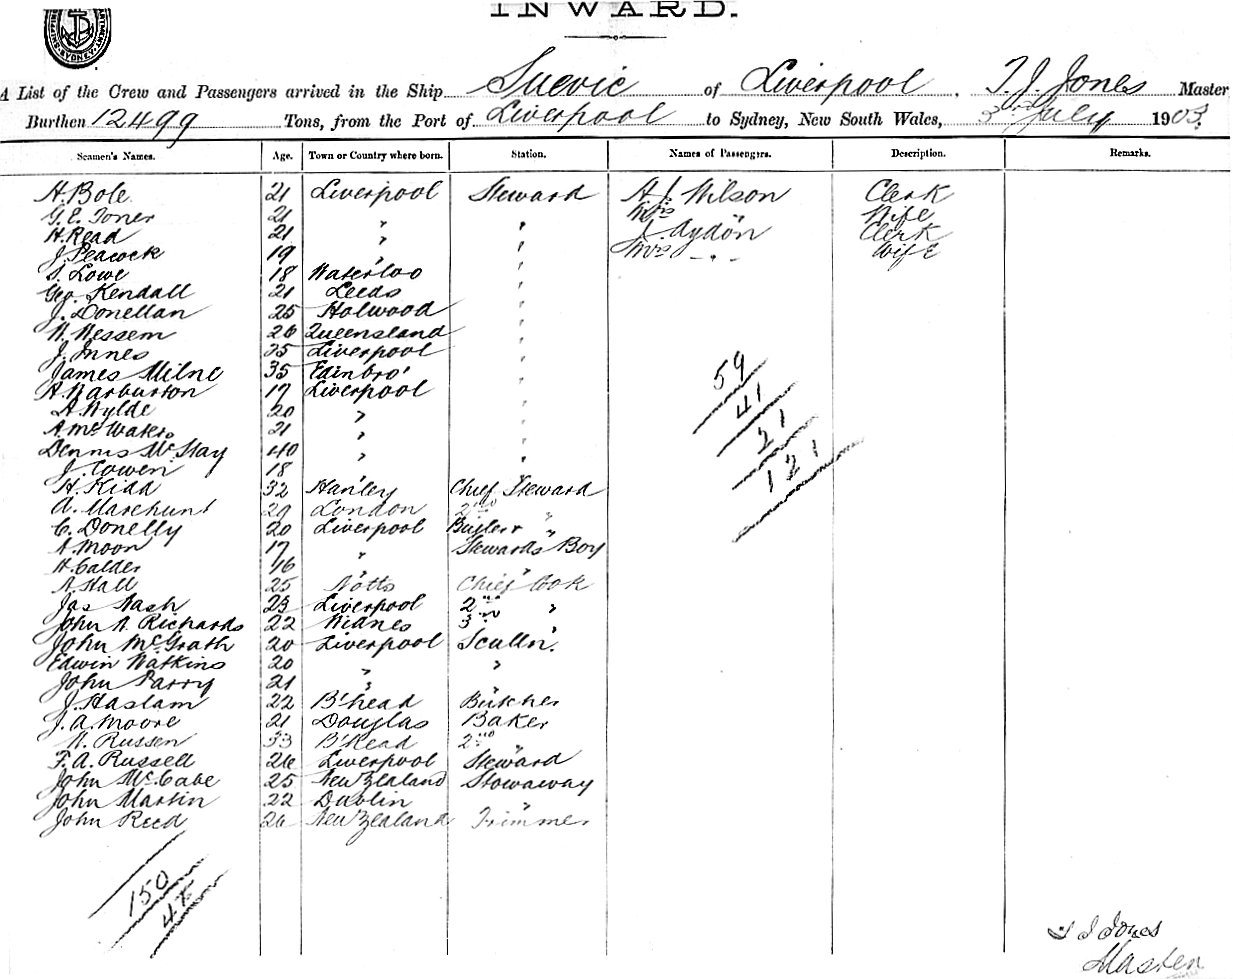 INWARD.
SYDNEY
A List of the Crew and Passengers arrived in the Ship Suevic of Liverpool, T. J. Jones Master
Burthen 12499 Tons, from the Port of Liverpool to Sydney, New South Wales, 3rd July 1903.
Seamen's Names. Age. Town or Country where born. Station. Names of Passengers. Description. Remarks.
H. Bole 21 Liverpool Steward H J. Wilson Clerk
G. E. Toner 21 " " Mrs " Wife
H. Read 21 " " J. Aydon Clerk
J. Peacock 19 " " Mrs - " - Wife
S. Lowe 18 Waterloo "
Geo. Kendall 21 Leeds "
J. Donellan 25 Holwood "
W. Wessem 26 Queensland "
J. Innes 25 Liverpool "
James Milne 35 Edinbro' "
A. Warburton 17 Liverpool "
A. Wylde 20 " "
A. Mc Waters 21 " "
Dennis Mc Stay 40 " "
J. Cowen 18 " "
H. Kidd 32 Hanley Chief Steward
A. Marchant 29 London 2nd "
C. Donelly 20 Liverpool Butler "
A. Moon 17 " Stewards Boy
H. Calder 16 " "
A. Hall 25 Notts Chief Cook
Jas Nash 23 Liverpool 2nd "
John W Richards 22 Widnes 3rd "
John McGrath 20 Liverpool Sculln'.
Edwin Watkins 20 " "
John Parry 21 " "
J. Haslam 22 B'head Butcher
J. A. Moore 21 Douglas Baker
W. Russen 33 B'head 2nd "
F. A. Russell 26 Liverpool Steward
John McCabe 25 New Zealand Stowaway
John Martin 22 Dublin "
John Reed 26 New Zealand Trimmer
59
41
21
121
150
48
T J Jones
Master